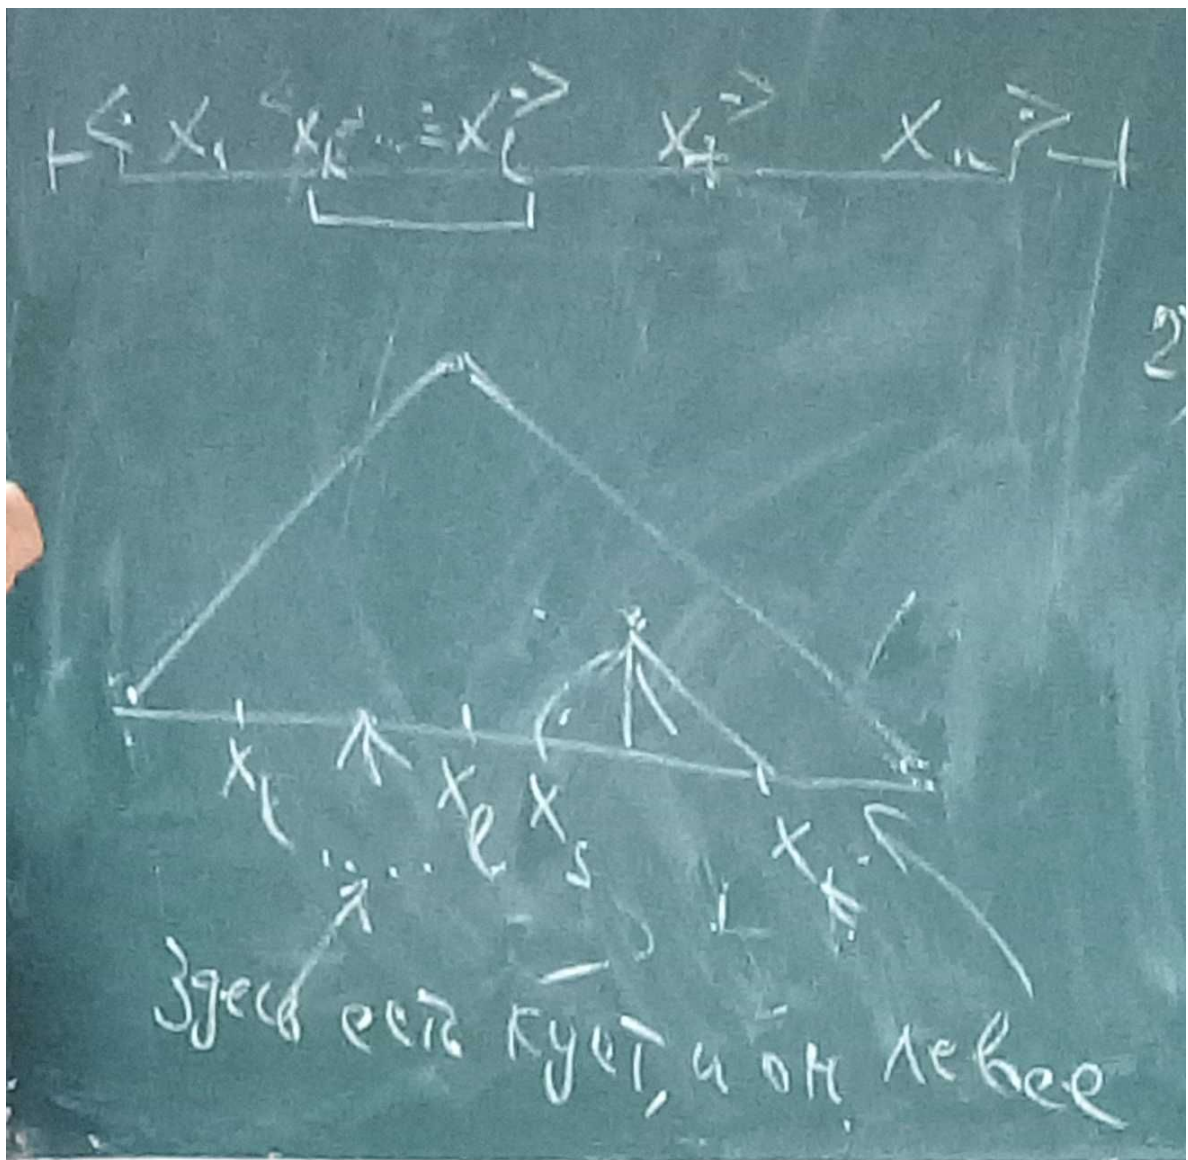 ⊢ <· X₁ <· X_k ≐ ... ≐ X_l ·> X_j ·> X_n ·> ⊣
2
X_l X_l X_s X_k
Здесь есть куст, и он левее